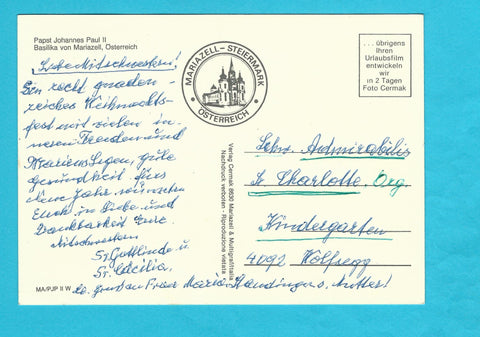 Papst Johannes Paul II
Basilika von Mariazell, Österreich
Liebe Mitschwestern!
Ein recht gnaden-
reiches Weihnachts-
fest mit vielen in-
neren Freuden und
Mariens Segen, gute
Gesundheit fürs
neue Jahr, wünschen
Euch in Liebe und
Dankbarkeit Eure
Mitschwestern
Sr. Gottlinde u.
Sr. Cäcilia,
MARIAZELL - STEIERMARK
ÖSTERREICH
... übrigens
Ihren
Urlaubsfilm
entwickeln
wir
in 2 Tagen
Foto Cermak
Verlag Cermak 8630 Mariazell & Multigraf/Italia
Nachdruck verboten - Riproduzione vietata
Schw. Admirabilis
Sr. Charlotte, Org.
Kindergarten
4092 Wolfsegg
MA/PJP II W
Maria Mutter!